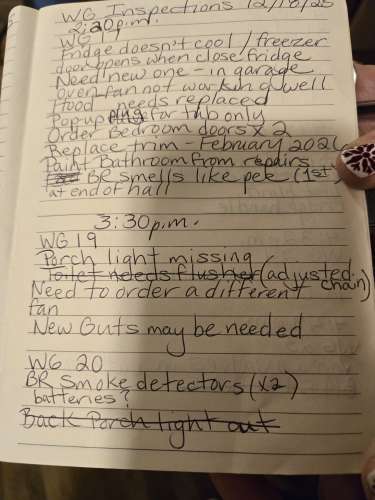 WG Inspections 12/18/25
2:20 p.m.
WG
Fridge doesn't cool / freezer
door opens when close fridge
Need new one - in garage
oven fan not working well
Hood needs replaced
Popup plug for tub only
Order Bedroom doors x 2
Replace trim - February 202
Paint Bathroom from repairs
BR smells like pee (1st
at end of hall
3:30 p.m.
WG 19
Porch light missing
Toilet needs flusher (adjusted chain)
Need to order a different
fan
New Guts may be needed
WG 20
BR Smoke detectors (x2)
batteries?
Back Porch light out